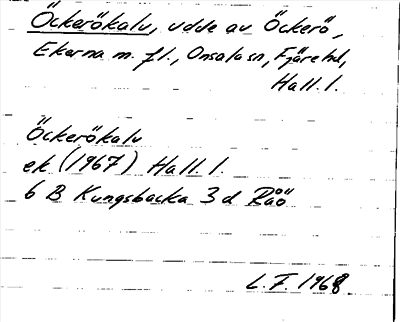 Öckerökalv, udde av Öckerö,
Ekerna m. fl., Onsala sn, Fjäre hd,
Hall. l.
Öckerökalv
ek (1967) Hall. l.
6 B Kungsbacka 3 d Råö
L. F. 1968